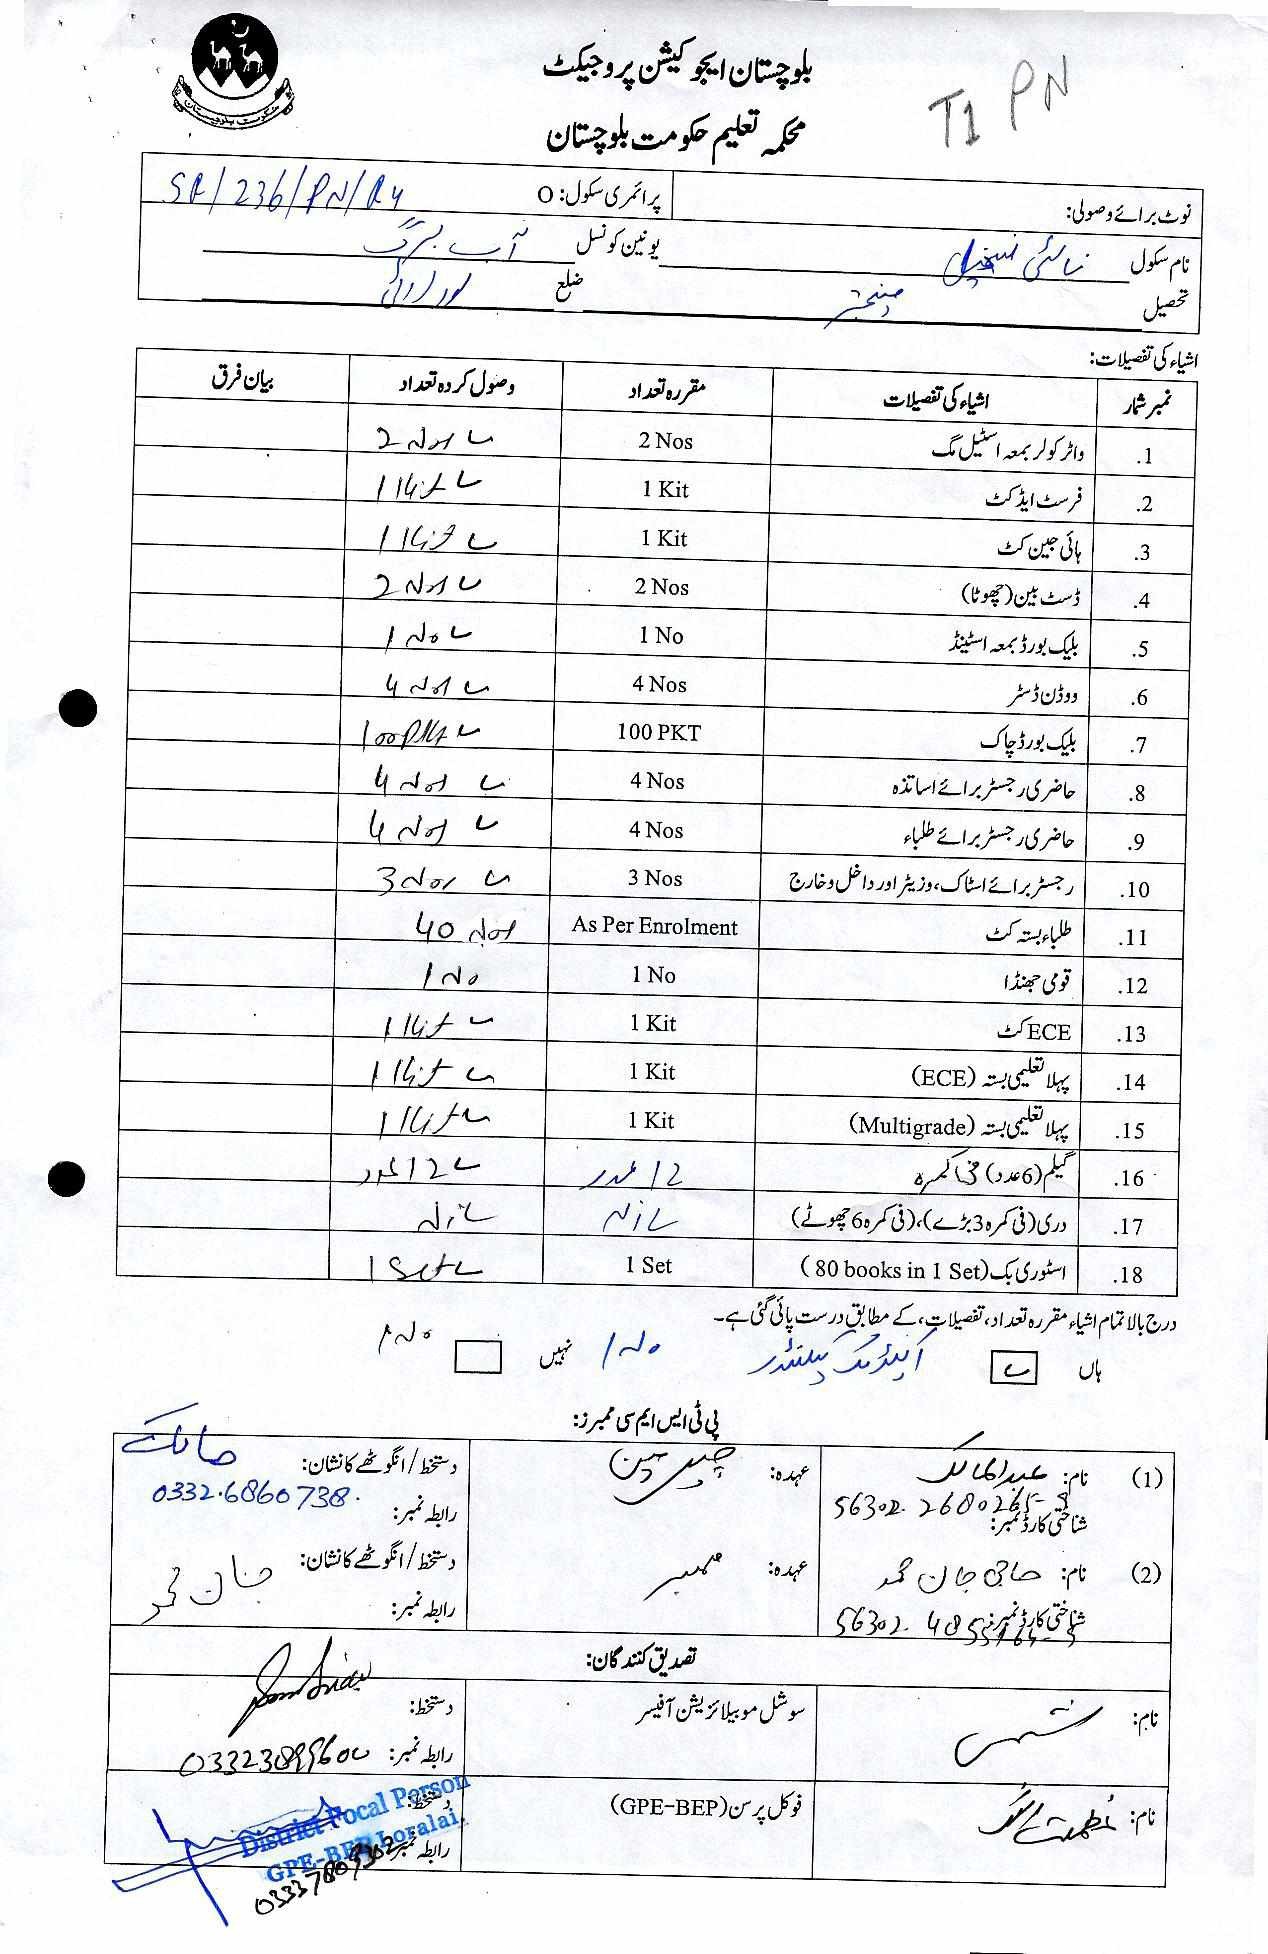 حکومت بلوچستان
بلوچستان ایجوکیشن پروجیکٹ
محکمہ تعلیم حکومت بلوچستان
T1 PN
نوٹ برائے وصولی: پرائمری سکول: O SR/236/PN/R4
نام سکول یونین کونسل
تحصیل ضلع لورالائی
اشیاء کی تفصیلات:
نمبر شمار اشیاء کی تفصیلات مقررہ تعداد وصول کردہ تعداد بیان فرق
1. واٹر کولر بمعہ اسٹیل مگ 2 Nos 2 Nos
2. فرسٹ ایڈ کٹ 1 Kit 1 Kit
3. ہائی جین کٹ 1 Kit 1 Kit
4. ڈسٹ بین (چھوٹا) 2 Nos 2 Nos
5. بلیک بورڈ بمعہ اسٹینڈ 1 No 1 No
6. ووڈن ڈسٹر 4 Nos 4 Nos
7. بلیک بورڈ چاک 100 PKT 100 PKT
8. حاضری رجسٹر برائے اساتذہ 4 Nos 4 Nos
9. حاضری رجسٹر برائے طلباء 4 Nos 4 Nos
10. رجسٹر برائے اسٹاک، وزیٹر اور داخل و خارج 3 Nos 3 Nos
11. طلباء بستہ کٹ As Per Enrolment 40 Nos
12. قومی جھنڈا 1 No 1 No
13. ECE کٹ 1 Kit 1 Kit
14. پہلا تعلیمی بستہ (ECE) 1 Kit 1 Kit
15. پہلا تعلیمی بستہ (Multigrade) 1 Kit 1 Kit
16. گیلم (6 عدد) فی کمرہ 12 عدد 12 عدد
17. دری (فی کمرہ 3 بڑے)، (فی کمرہ 6 چھوٹے)
18. اسٹوری بک (80 books in 1 Set) 1 Set 1 Set
درج بالا تمام اشیاء مقررہ تعداد، تفصیلات، کے مطابق درست پائی گئی ہے۔
ہاں نہیں
پی ٹی ایس ایم سی ممبرز:
(1) نام: عبدالمالک عہدہ: چیئرمین دستخط/انگوٹھے کا نشان: مالک
شناختی کارڈ نمبر: رابطہ نمبر: 0332.6860738
(2) نام: حاجی جان محمد عہدہ: ممبر دستخط/انگوٹھے کا نشان: جان محمد
شناختی کارڈ نمبر: رابطہ نمبر:
تصدیق کنندگان:
نام: شمس سوشل موبیلائزیشن آفیسر دستخط:
رابطہ نمبر:
نام: فوکل پرسن (GPE-BEP) دستخط:
رابطہ نمبر:
District Focal Person
GPE-BEP Loralai.